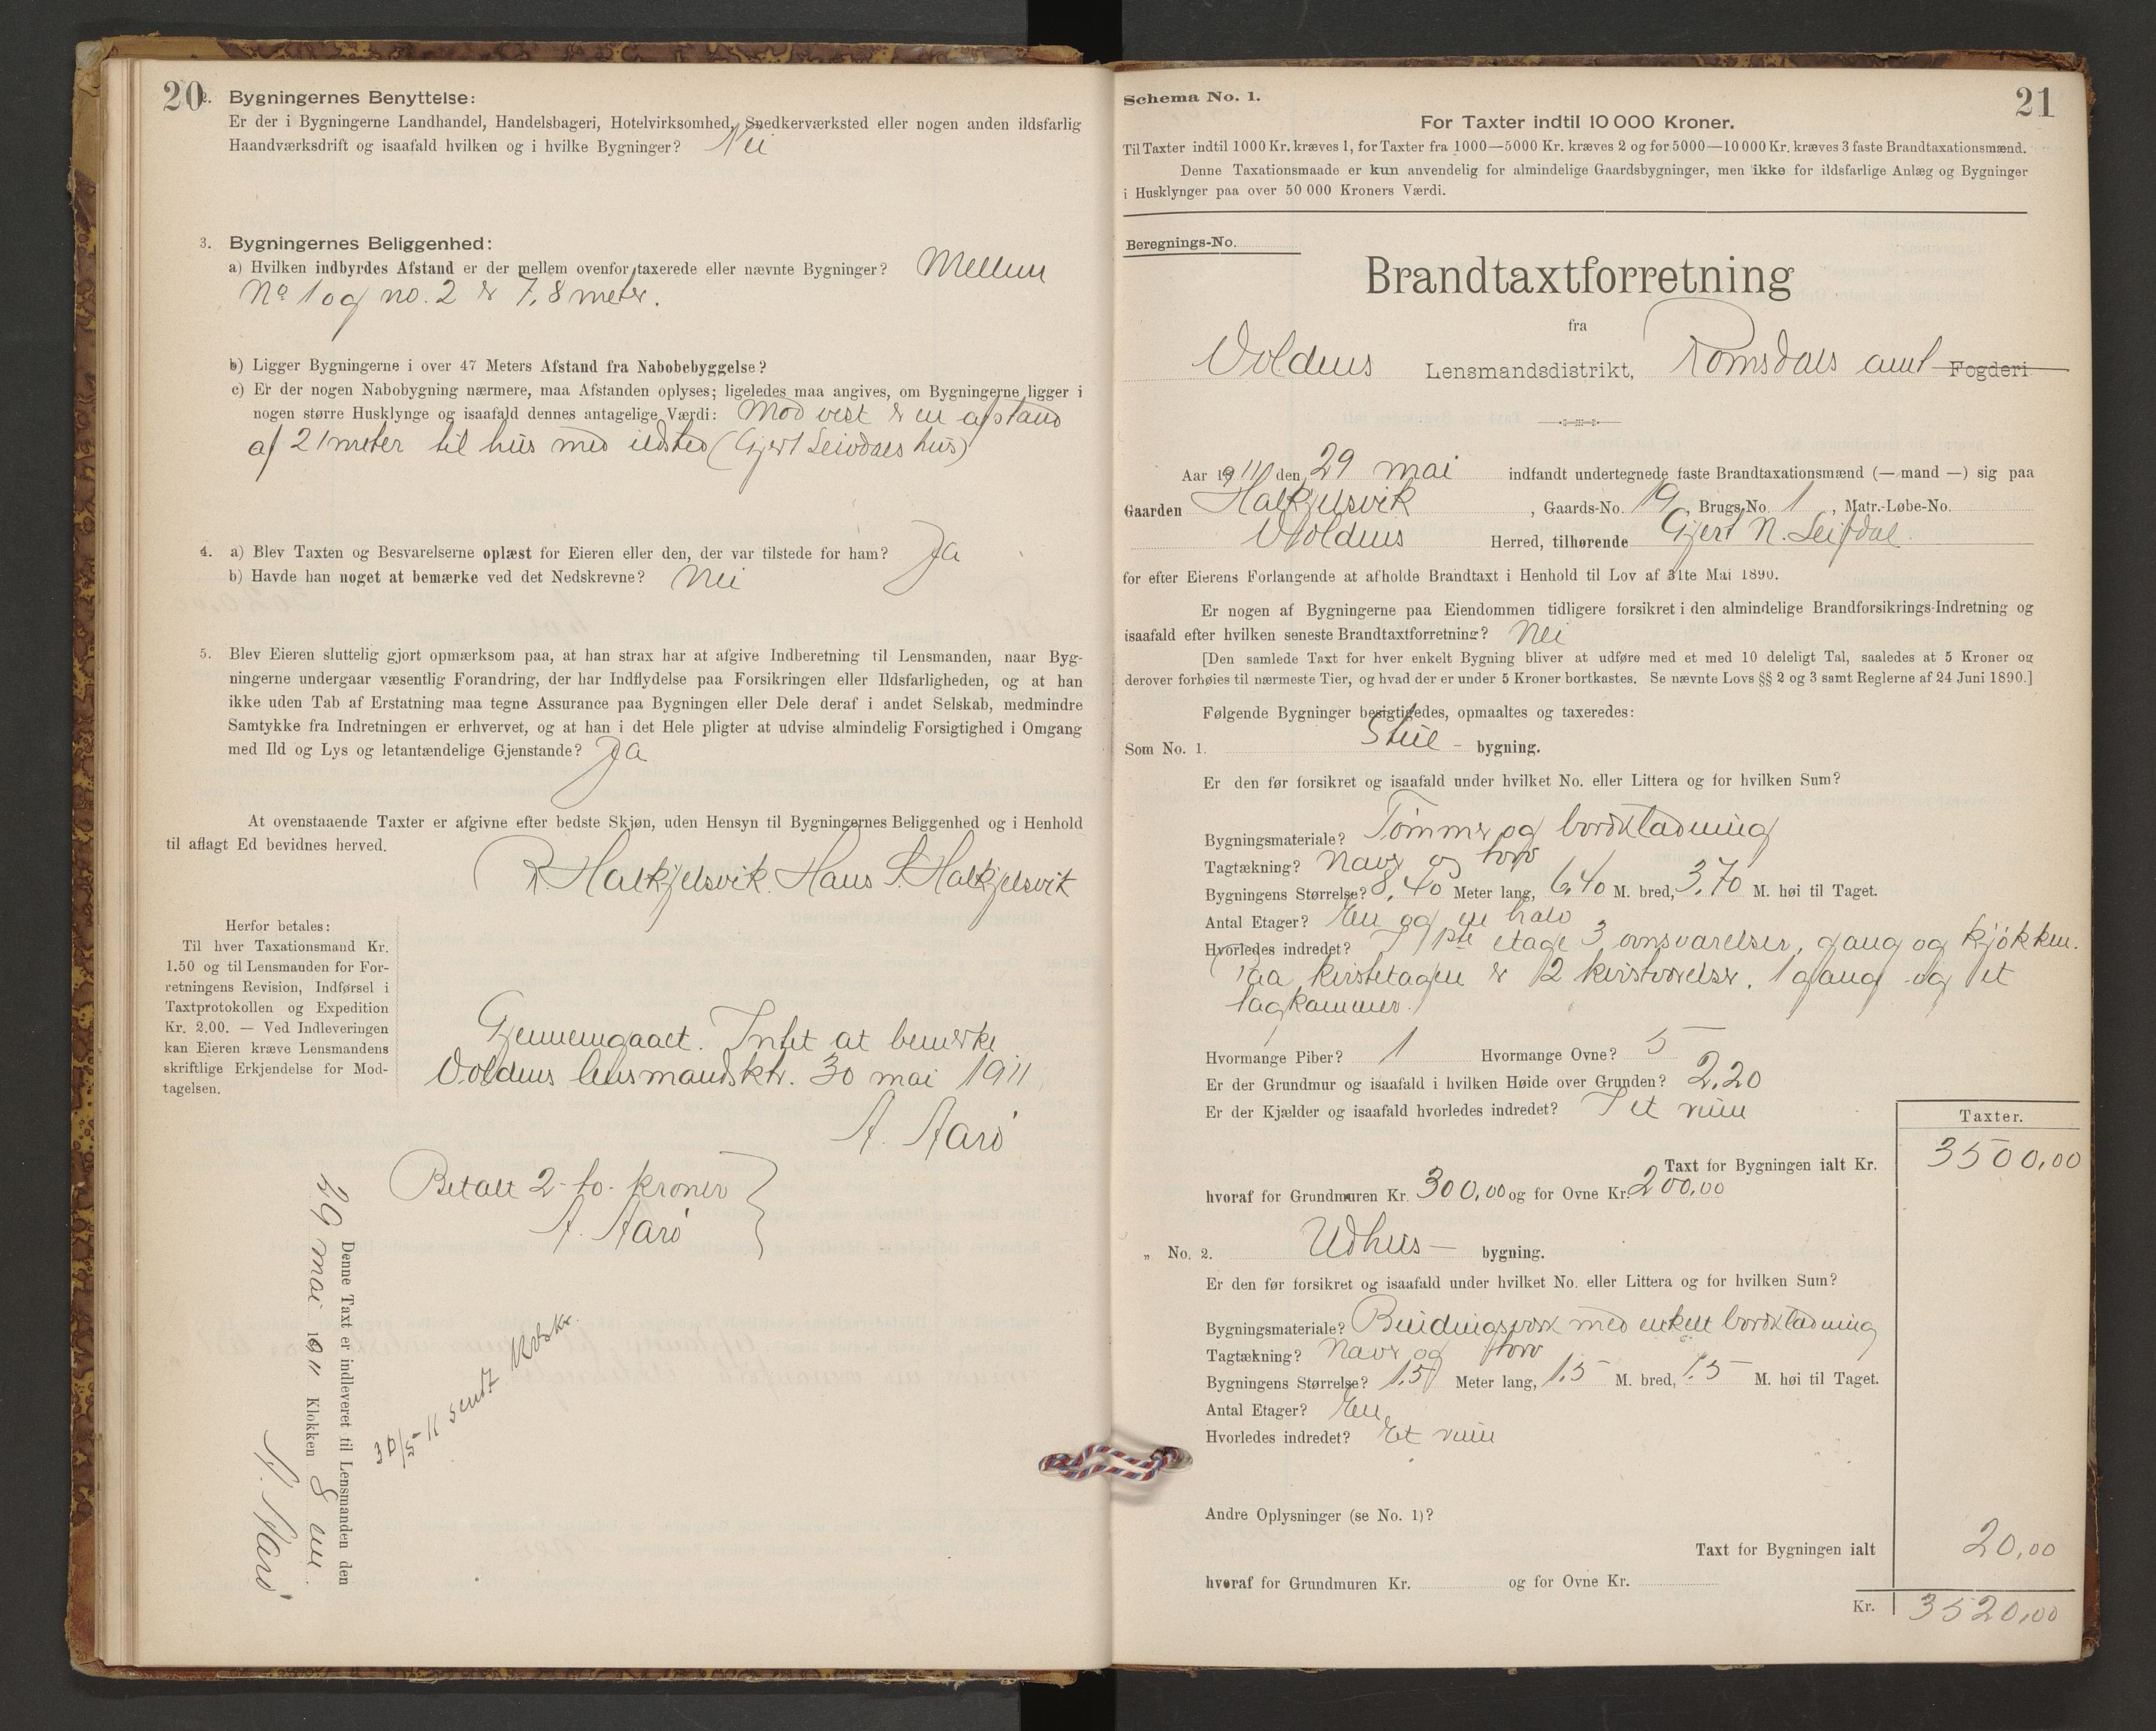 20
2. Bygningernes Benyttelse:
Er der i Bygningerne Landhandel, Handelsbageri, Hotelvirksomhed, Snedkerværksted eller nogen anden ildsfarlig
Haandværksdrift og isaafald hvilken og i hvilke Bygninger? Nei
3. Bygningernes Beliggenhed:
a) Hvilken indbyrdes Afstand er der mellem ovenfor taxerede eller nævnte Bygninger? Mellem
No 1 og no. 2 er 7,8 meter.
b) Ligger Bygningerne i over 47 Meters Afstand fra Nabobebyggelse?
c) Er der nogen Nabobygning nærmere, maa Afstanden oplyses; ligeledes maa angives, om Bygningerne ligger i
nogen større Husklynge og isaafald dennes antagelige Værdi: Mod vest er en afstand
af 21 meter til hus med ildsted (Gjert Leivdals hus)
4. a) Blev Taxten og Besvarelserne oplæst for Eieren eller den, der var tilstede for ham? Ja
b) Havde han noget at bemærke ved det Nedskrevne? Nei
5. Blev Eieren sluttelig gjort opmærksom paa, at han strax har at afgive Indberetning til Lensmanden, naar Byg-
ningerne undergaar væsentlig Forandring, der har Indflydelse paa Forsikringen eller Ildsfarligheden, og at han
ikke uden Tab af Erstatning maa tegne Assurance paa Bygningen eller Dele deraf i andet Selskab, medmindre
Samtykke fra Indretningen er erhvervet, og at han i det Hele pligter at udvise almindelig Forsigtighed i Omgang
med Ild og Lys og letantændelige Gjenstande? Ja
At ovenstaaende Taxter er afgivne efter bedste Skjøn, uden Hensyn til Bygningernes Beliggenhed og i Henhold
til aflagt Ed bevidnes herved.
R Halkjelsvik. Hans S. Halkjelsvik
Herfor betales:
Til hver Taxationsmand Kr.
1.50 og til Lensmanden for For-
retningens Revision, Indførsel i
Taxtprotokollen og Expedition
Kr. 2.00. — Ved Indleveringen
kan Eieren kræve Lensmandens
skriftlige Erkjendelse for Mod-
tagelsen.
Gjennemgaaet. Intet at bemerke
Voldens lensmandsktr. 30 mai 1911
A. Aarø
Betalt 2 - to - kroner
A. Aarø
Denne Taxt er indleveret til Lensmanden den
29 mai 1911 Klokken 8 em.
A. Aarø
30/5-11 sendt
Schema No. 1.
21
For Taxter indtil 10 000 Kroner.
Til Taxter indtil 1000 Kr. kræves 1, for Taxter fra 1000—5000 Kr. kræves 2 og for 5000—10 000 Kr. kræves 3 faste Brandtaxationsmænd.
Denne Taxationsmaade er kun anvendelig for almindelige Gaardsbygninger, men ikke for ildsfarlige Anlæg og Bygninger
i Husklynger paa over 50 000 Kroners Værdi.
Beregnings-No.
Brandtaxtforretning
fra
Voldens Lensmandsdistrikt, Romsdals amt Fogderi
Aar 1911 den 29 mai indfandt undertegnede faste Brandtaxationsmænd (— mand —) sig paa
Gaarden Halkjelsvik, Gaards-No. 19, Brugs-No. 1, Matr.-Løbe-No.
Voldens Herred, tilhørende Gjert N. Leifdal
for efter Eierens Forlangende at afholde Brandtaxt i Henhold til Lov af 31te Mai 1890.
Er nogen af Bygningerne paa Eiendommen tidligere forsikret i den almindelige Brandforsikrings-Indretning og
isaafald efter hvilken seneste Brandtaxtforretning? Nei
[Den samlede Taxt for hver enkelt Bygning bliver at udføre med et med 10 deleligt Tal, saaledes at 5 Kroner og
derover forhøies til nærmeste Tier, og hvad der er under 5 Kroner bortkastes. Se nævnte Lovs §§ 2 og 3 samt Reglerne af 24 Juni 1890.]
Følgende Bygninger besigtigedes, opmaaltes og taxeredes:
Som No. 1. Stue - bygning.
Er den før forsikret og isaafald under hvilket No. eller Littera og for hvilken Sum?
Bygningsmateriale? Tømmer og bordklædning
Tagtækning? Næver og torv
Bygningens Størrelse? 8,40 Meter lang, 6,40 M. bred, 3,70 M. høi til Taget.
Antal Etager? En og en halv
Hvorledes indredet? I 1ste etage 3 ovnsværelser, gang og kjøkken.
Paa kvistetagen er 2 kvistværelser, 1 gang og et
lagkammer.
Hvormange Piber? 1 Hvormange Ovne? 5
Er der Grundmur og isaafald i hvilken Høide over Grunden? 2,20
Er der Kjælder og isaafald hvorledes indredet? I et rum
Taxter.
Taxt for Bygningen ialt Kr. 3500,00
hvoraf for Grundmuren Kr. 300,00 og for Ovne Kr. 200,00
„ No. 2. Udhus — bygning.
Er den før forsikret og isaafald under hvilket No. eller Littera og for hvilken Sum?
Bygningsmateriale? Bindingsverk med enkelt bordklædning
Tagtækning? Næver og torv
Bygningens Størrelse? 1,5 Meter lang, 1,5 M. bred, 1,5 M. høi til Taget.
Antal Etager? En
Hvorledes indredet? Et rum
Andre Oplysninger (se No. 1)?
Taxt for Bygningen ialt 20,00
hvoraf for Grundmuren Kr. og for Ovne Kr.
Kr. 3520,00